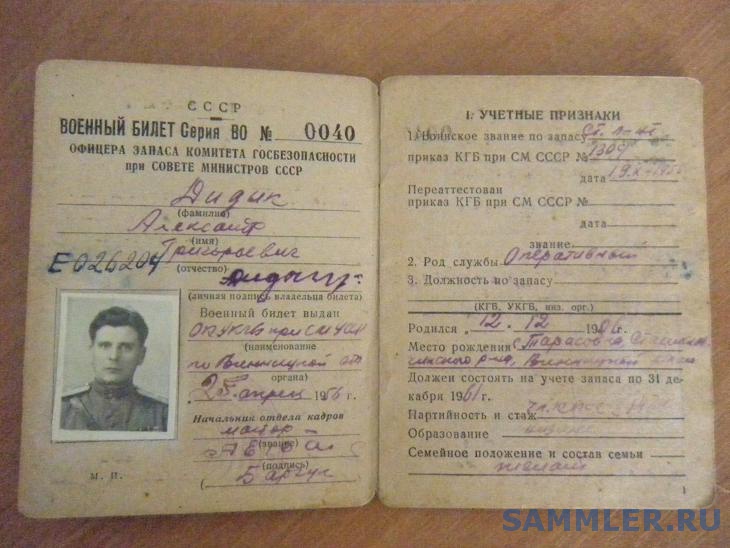 СССР
ВОЕННЫЙ БИЛЕТ Серия ВО № 0040
ОФИЦЕРА ЗАПАСА КОМИТЕТА ГОСБЕЗОПАСНОСТИ
при СОВЕТЕ МИНИСТРОВ СССР
Дидык
(фамилия)
Александр
(имя)
Григорьевич
(отчество)
Е026204
(личная подпись владельца билета)
Военный билет выдан
(наименование
по Винницкой
органа)
25 апреля 1956 г.
Начальник отдела кадров
майор
(звание)
(подпись)
М. П.
I. УЧЕТНЫЕ ПРИЗНАКИ
1. Воинское звание по запасу ст. л-нт
приказ КГБ при СМ СССР № 1309
дата
Переаттестован
приказ КГБ при СМ СССР №
дата
звание
2. Род службы Оперативный
3. Должность по запасу
(КГБ, УКГБ, инз. орг.)
Родился „12„ 12 1906г.
Место рождения Тарасовка
р-на, Винницкой
Должен состоять на учете запаса по 31 де-
кабря 1961 г.
Партийность и стаж
Образование
Семейное положение и состав семьи
женат
1
SAMMLER.RU